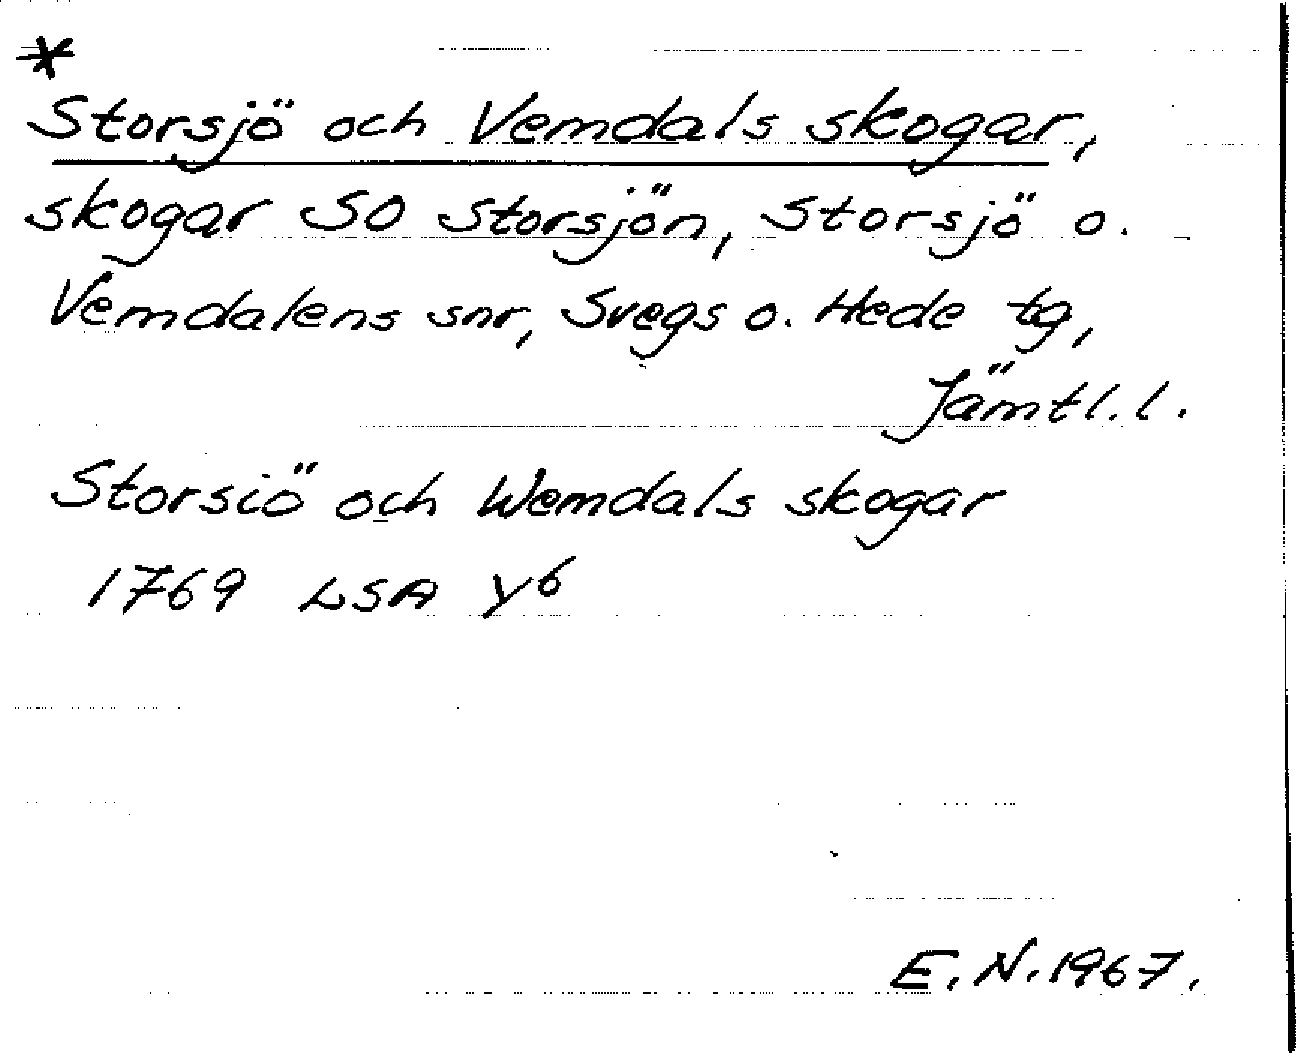 *
Storsjö och Vemdals skogar,
skogar SO Storsjön, Storsjö o.
Vemdalens snr, Svegs o. Hede tg,
Jämtl. l.
Storsiö och Wemdals skogar
1769 LSA Y6
E. N. 1967.